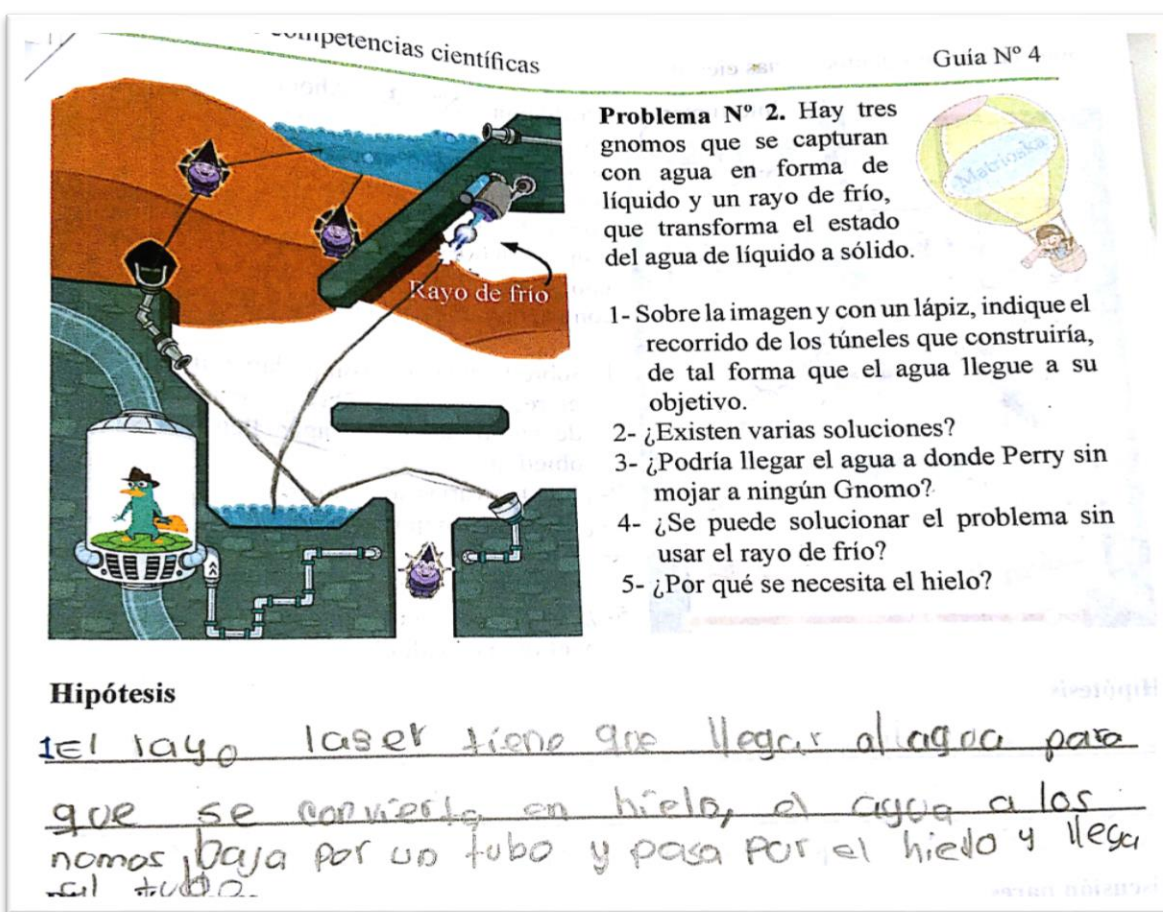 competencias científicas
Guía Nº 4
Problema Nº 2. Hay tres
gnomos que se capturan
con agua en forma de
líquido y un rayo de frío,
que transforma el estado
del agua de líquido a sólido.
Matrioska
Rayo de frío
1- Sobre la imagen y con un lápiz, indique el
recorrido de los túneles que construiría,
de tal forma que el agua llegue a su
objetivo.
2- ¿Existen varias soluciones?
3- ¿Podría llegar el agua a donde Perry sin
mojar a ningún Gnomo?
4- ¿Se puede solucionar el problema sin
usar el rayo de frío?
5- ¿Por qué se necesita el hielo?
Hipótesis
1El rayo laser tiene que llegar al agua para
que se convierta en hielo, el agua a los
nomos baja por un tubo y pasa por el hielo y llega
al tubo.